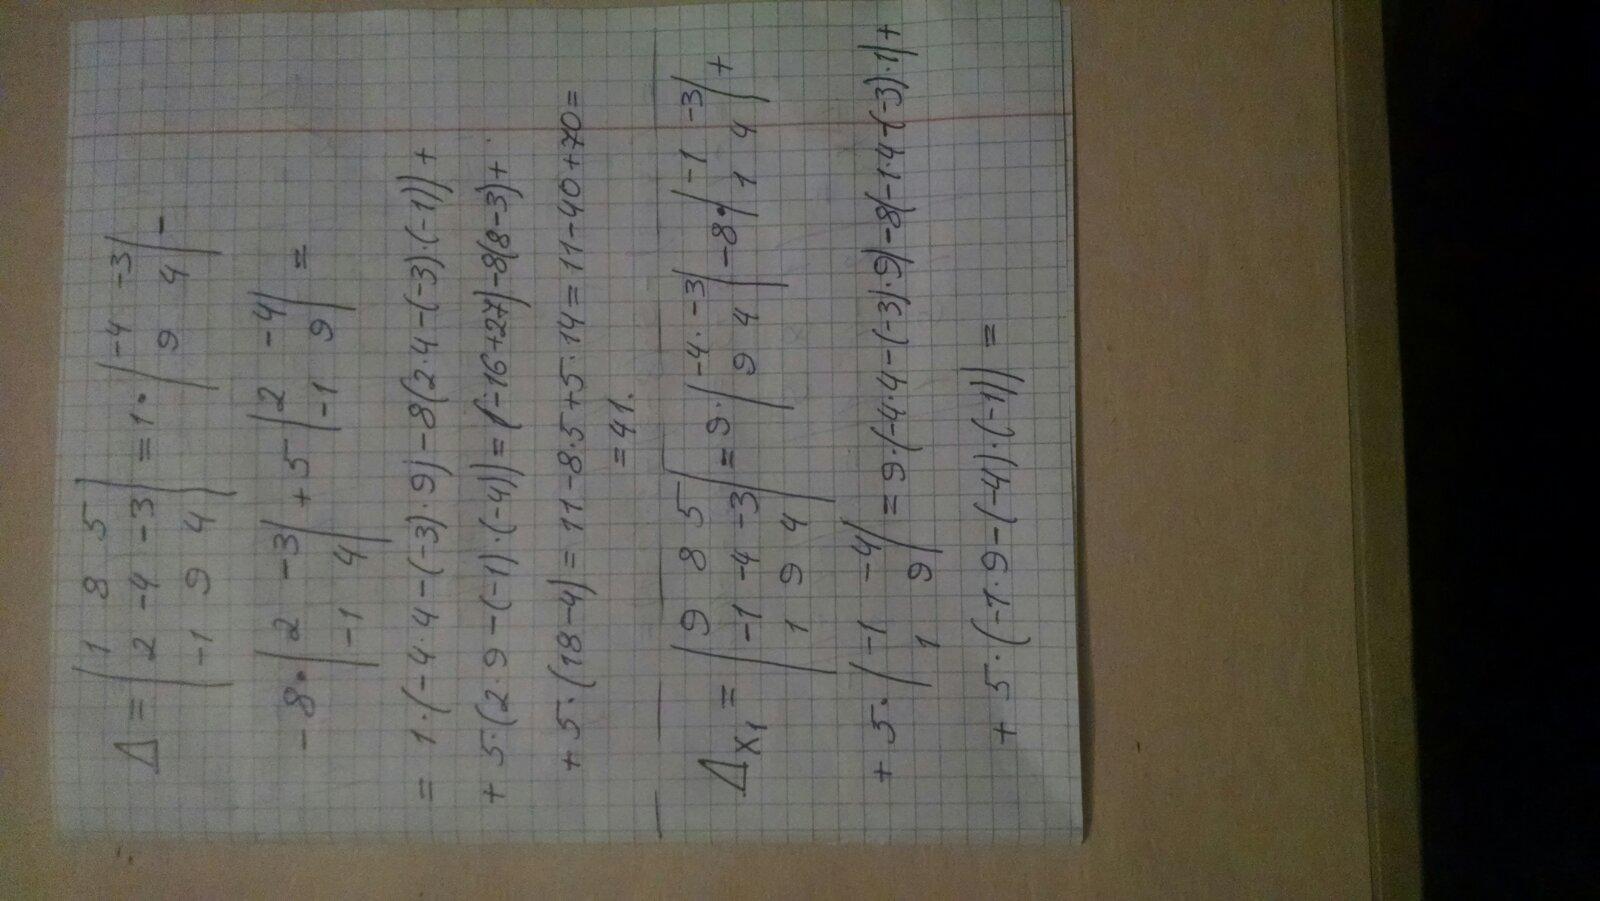 Δ = | 1 8 5 |
| 2 -4 -3 | = 1 · | -4 -3 |
| -1 9 4 | | 9 4 | -
- 8 · | 2 -3 | + 5 | 2 -4 |
| -1 4 | | -1 9 | =
= 1·(-4·4-(-3)·9)-8(2·4-(-3)·(-1))+
+ 5·(2·9-(-1)·(-4))=(-16+27)-8(8-3)+
+ 5·(18-4)=11-8·5+5·14=11-40+70=
= 41.
Δx₁ = | 9 8 5 |
| -1 -4 -3 | = 9·| -4 -3 | -8·| -1 -3 | +
| 1 9 4 | | 9 4 | | 1 4 |
+ 5·| -1 -4 |
| 1 9 | = 9·(-4·4-(-3)·9)-8(-1·4-(-3)·1)+
+ 5·(-1·9-(-4)·(-1)) =